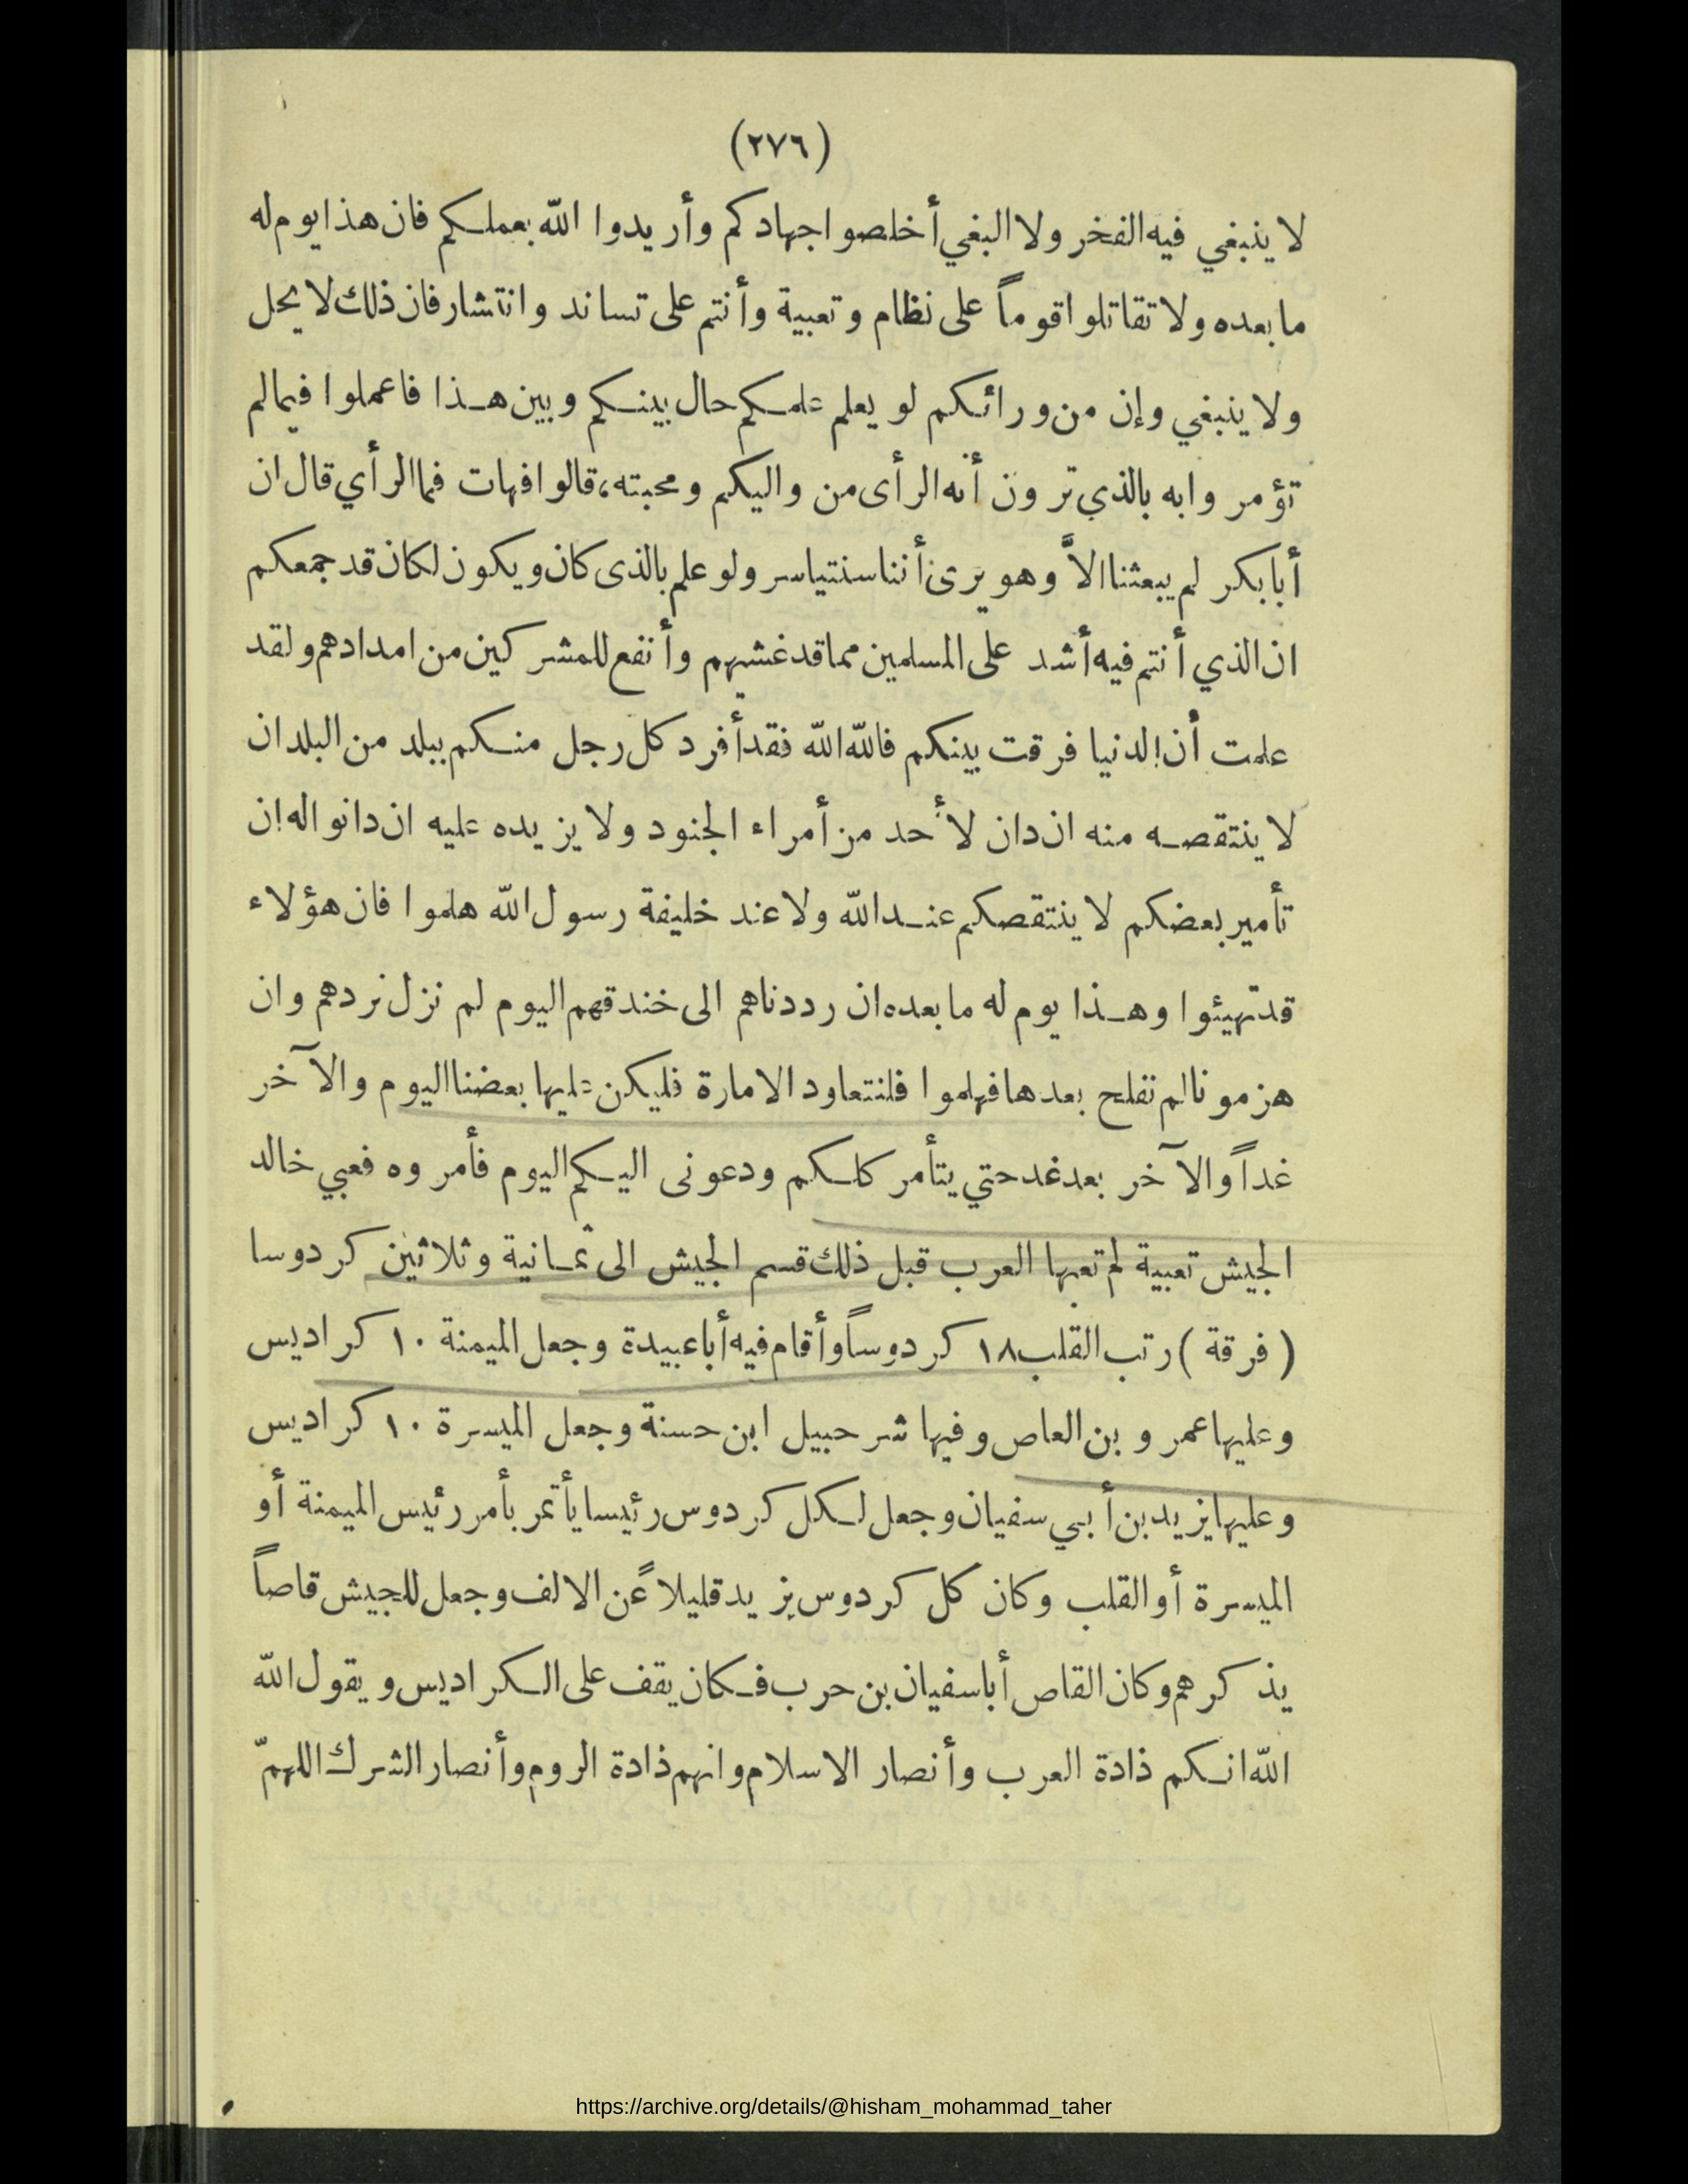 (٢٧٦)
لا ينبغي فيه الفخر ولا البغي أخلصوا جهادكم وأريدوا الله بعملكم فان هذا يوم له
ما بعده ولا تقاتلوا قوماً على نظام وتعبية وأنتم على تساند وانتشار فان ذلك لا يحل
ولا ينبغي وإن من ورائكم لو يعلم علمكم حال بينكم وبين هذا فاعملوا فيما لم
تؤمروا به بالذي ترون أنه الرأى من واليكم ومحبته، قالوا فهات فما الرأي قال ان
أبا بكر لم يبعثنا الاَّ وهو يرى أننا سنتياسر ولو علم بالذى كان ويكون لكان قد جمعكم
ان الذي أنتم فيه أشد على المسلمين مما قد غشيهم وأنفع للمشركين من امدادهم ولقد
علمت أن الدنيا فرقت بينكم فالله الله فقد أفرد كل رجل منكم ببلد من البلدان
لا ينتقصه منه ان دان لأحد من أمراء الجنود ولا يزيده عليه ان دانوا له إن
تأمير بعضكم لا ينتقصكم عند الله ولا عند خليفة رسول الله هلموا فان هؤلاء
قد تهيئوا وهذا يوم له ما بعده ان رددناهم الى خندقهم اليوم لم نزل نردهم وان
هزمونا لم نفلح بعدها فهلموا فلنتعاود الامارة فليكن عليها بعضنا اليوم والآخر
غداً والآخر بعد غد حتي يتأمر كلكم ودعونى اليكم اليوم فأمروه فعبي خالد
الجيش تعبية لم تعبها العرب قبل ذلك قسم الجيش الى ثمانية وثلاثين كردوسا
(فرقة) رتب القلب ١٨ كردوساً وأقام فيه أبا عبيدة وجعل الميمنة ١٠ كراديس
وعليها عمرو بن العاص وفيها شرحبيل ابن حسنة وجعل الميسرة ١٠ كراديس
وعليها يزيد بن أبي سفيان وجعل لكل كردوس رئيسا يأتمر بأمر رئيس الميمنة أو
الميسرة أو القلب وكان كل كردوس يزيد قليلاً عن الالف وجعل للجيش قاصاً
يذكرهم وكان القاص أبا سفيان بن حرب فكان يقف على الكراديس ويقول الله
الله انكم ذادة العرب وأنصار الاسلام وانهم ذادة الروم وأنصار الشرك اللهمّ
https://archive.org/details/@hisham_mohammad_taher